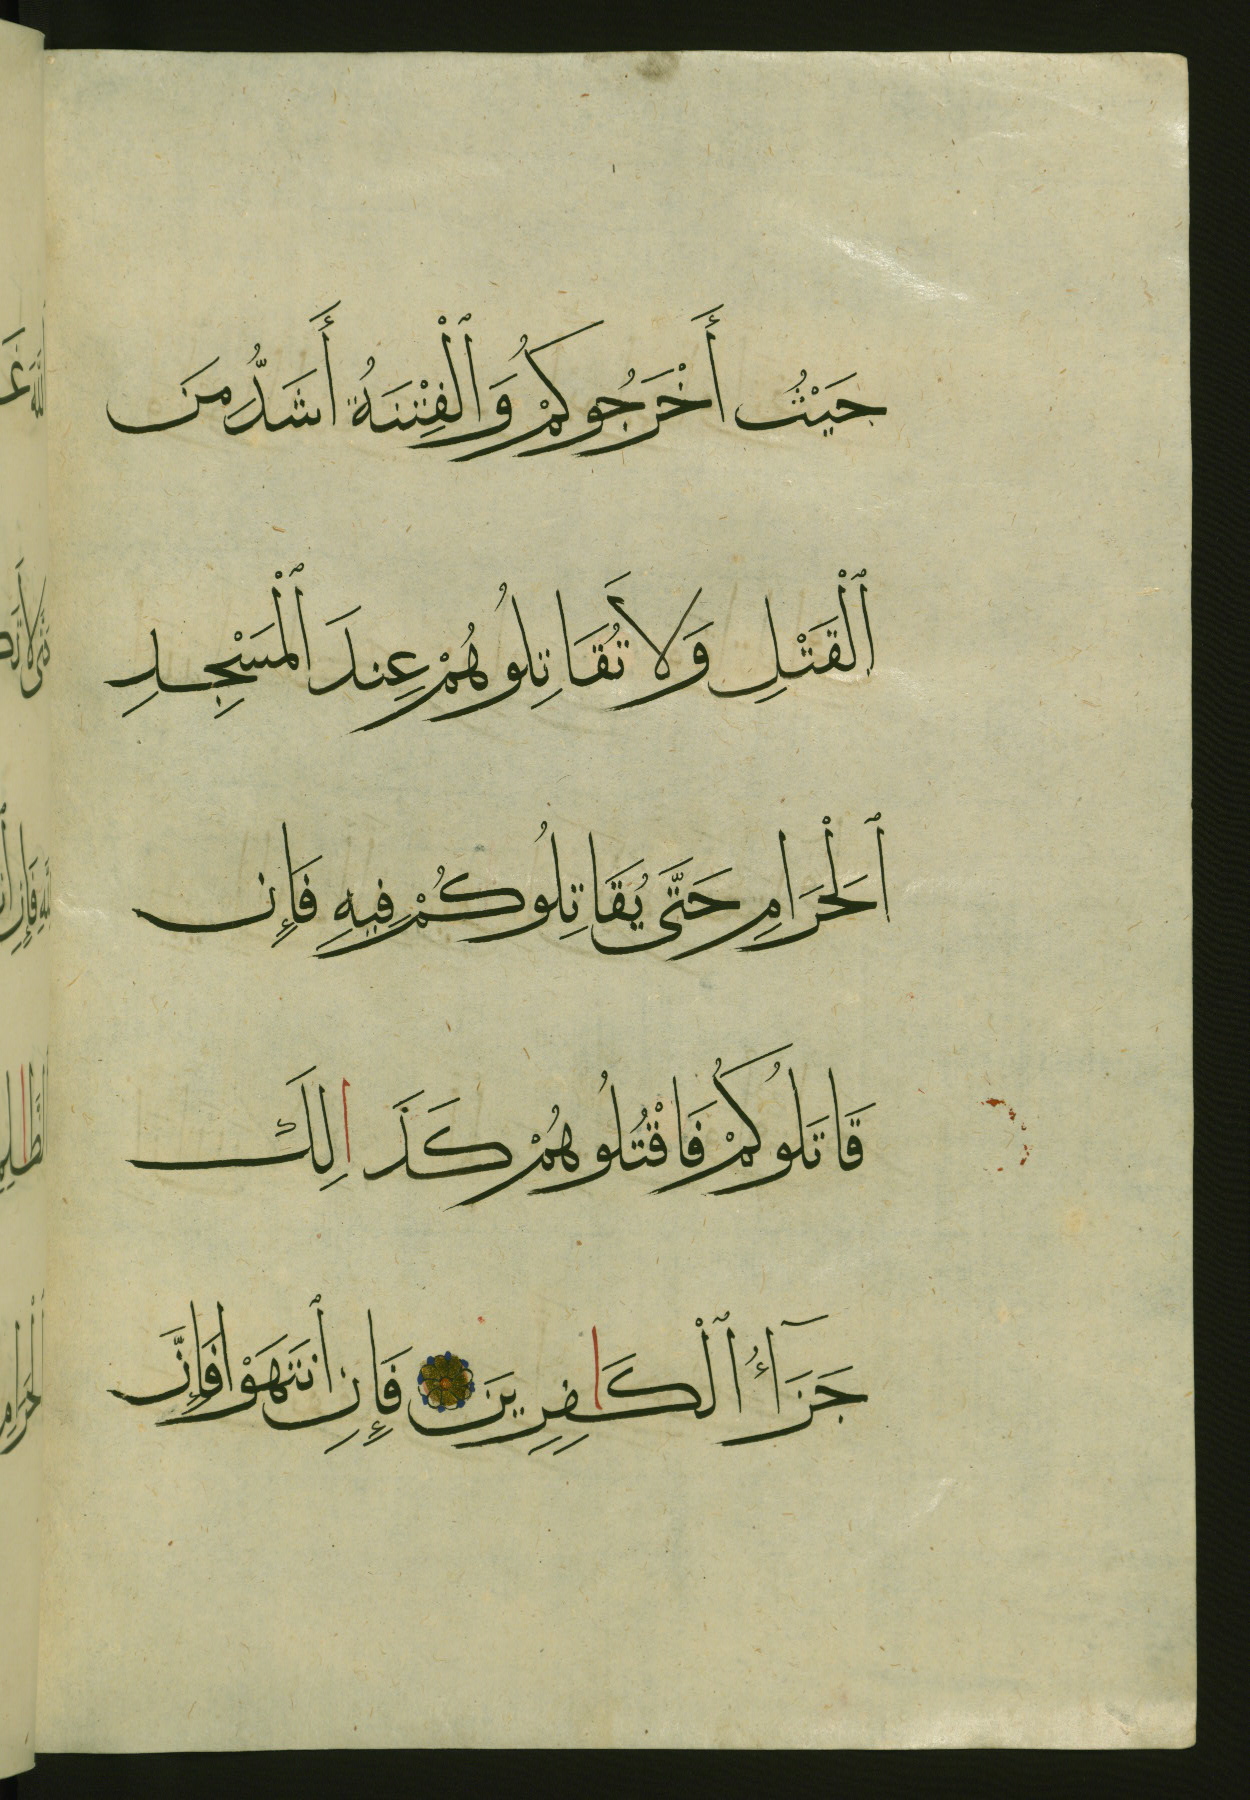 حَيْثُ أَخْرَجُوكُمْ وَٱلْفِتْنَةُ أَشَدُّ مِنَ
ٱلْقَتْلِ وَلَا تُقَاتِلُوهُمْ عِندَ ٱلْمَسْجِدِ
ٱلْحَرَامِ حَتَّى يُقَاتِلُوكُمْ فِيهِ فَإِن
قَاتَلُوكُمْ فَاقْتُلُوهُمْ كَذَالِكَ
جَزَآءُ ٱلْكَافِرِينَ فَإِنِ ٱنتَهَوْا فَإِنَّ